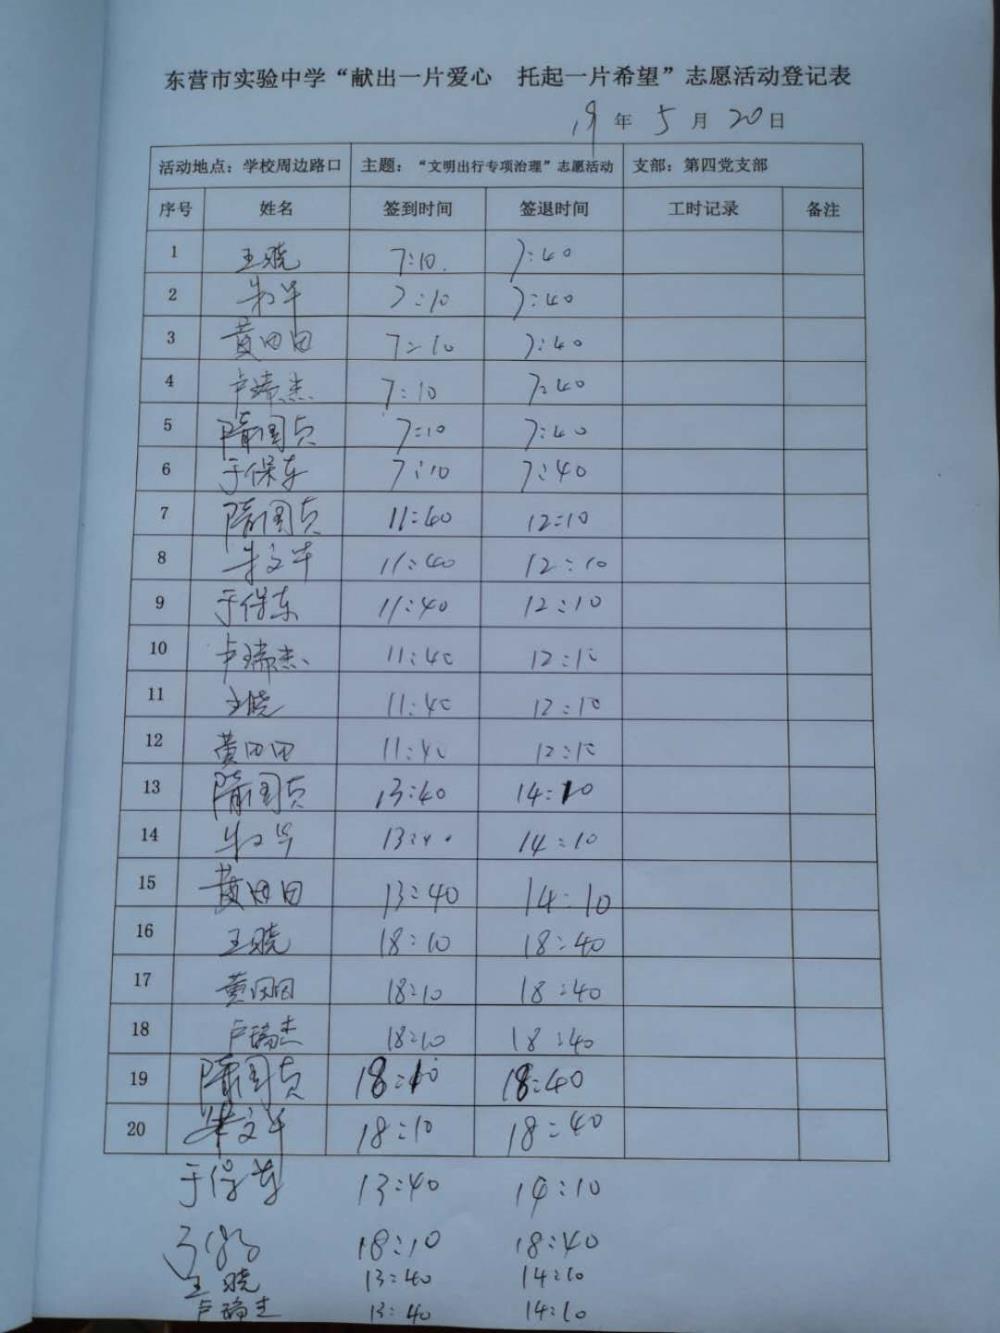 东营市实验中学“献出一片爱心 托起一片希望”志愿活动登记表
19年5月20日
活动地点：学校周边路口 主题：“文明出行专项治理”志愿活动 支部：第四党支部
序号 姓名 签到时间 签退时间 工时记录 备注
1 王晓 7:10 7:40
2 7:10 7:40
3 黄田田 7:10 7:40
4 卢瑞杰 7:10 7:40
5 隋国贞 7:10 7:40
6 于保东 7:10 7:40
7 隋国贞 11:40 12:10
8 朱文华 11:40 12:10
9 于保东 11:40 12:10
10 卢瑞杰 11:40 12:10
11 王晓 11:40 12:10
12 黄田田 11:40 12:10
13 隋国贞 13:40 14:10
14 13:40 14:10
15 黄田田 13:40 14:10
16 王晓 18:10 18:40
17 黄田田 18:10 18:40
18 卢瑞杰 18:10 18:40
19 隋国贞 18:10 18:40
20 朱文华 18:10 18:40
于保东 13:40 14:10
18:10 18:40
王晓 13:40 14:10
卢瑞杰 13:40 14:10